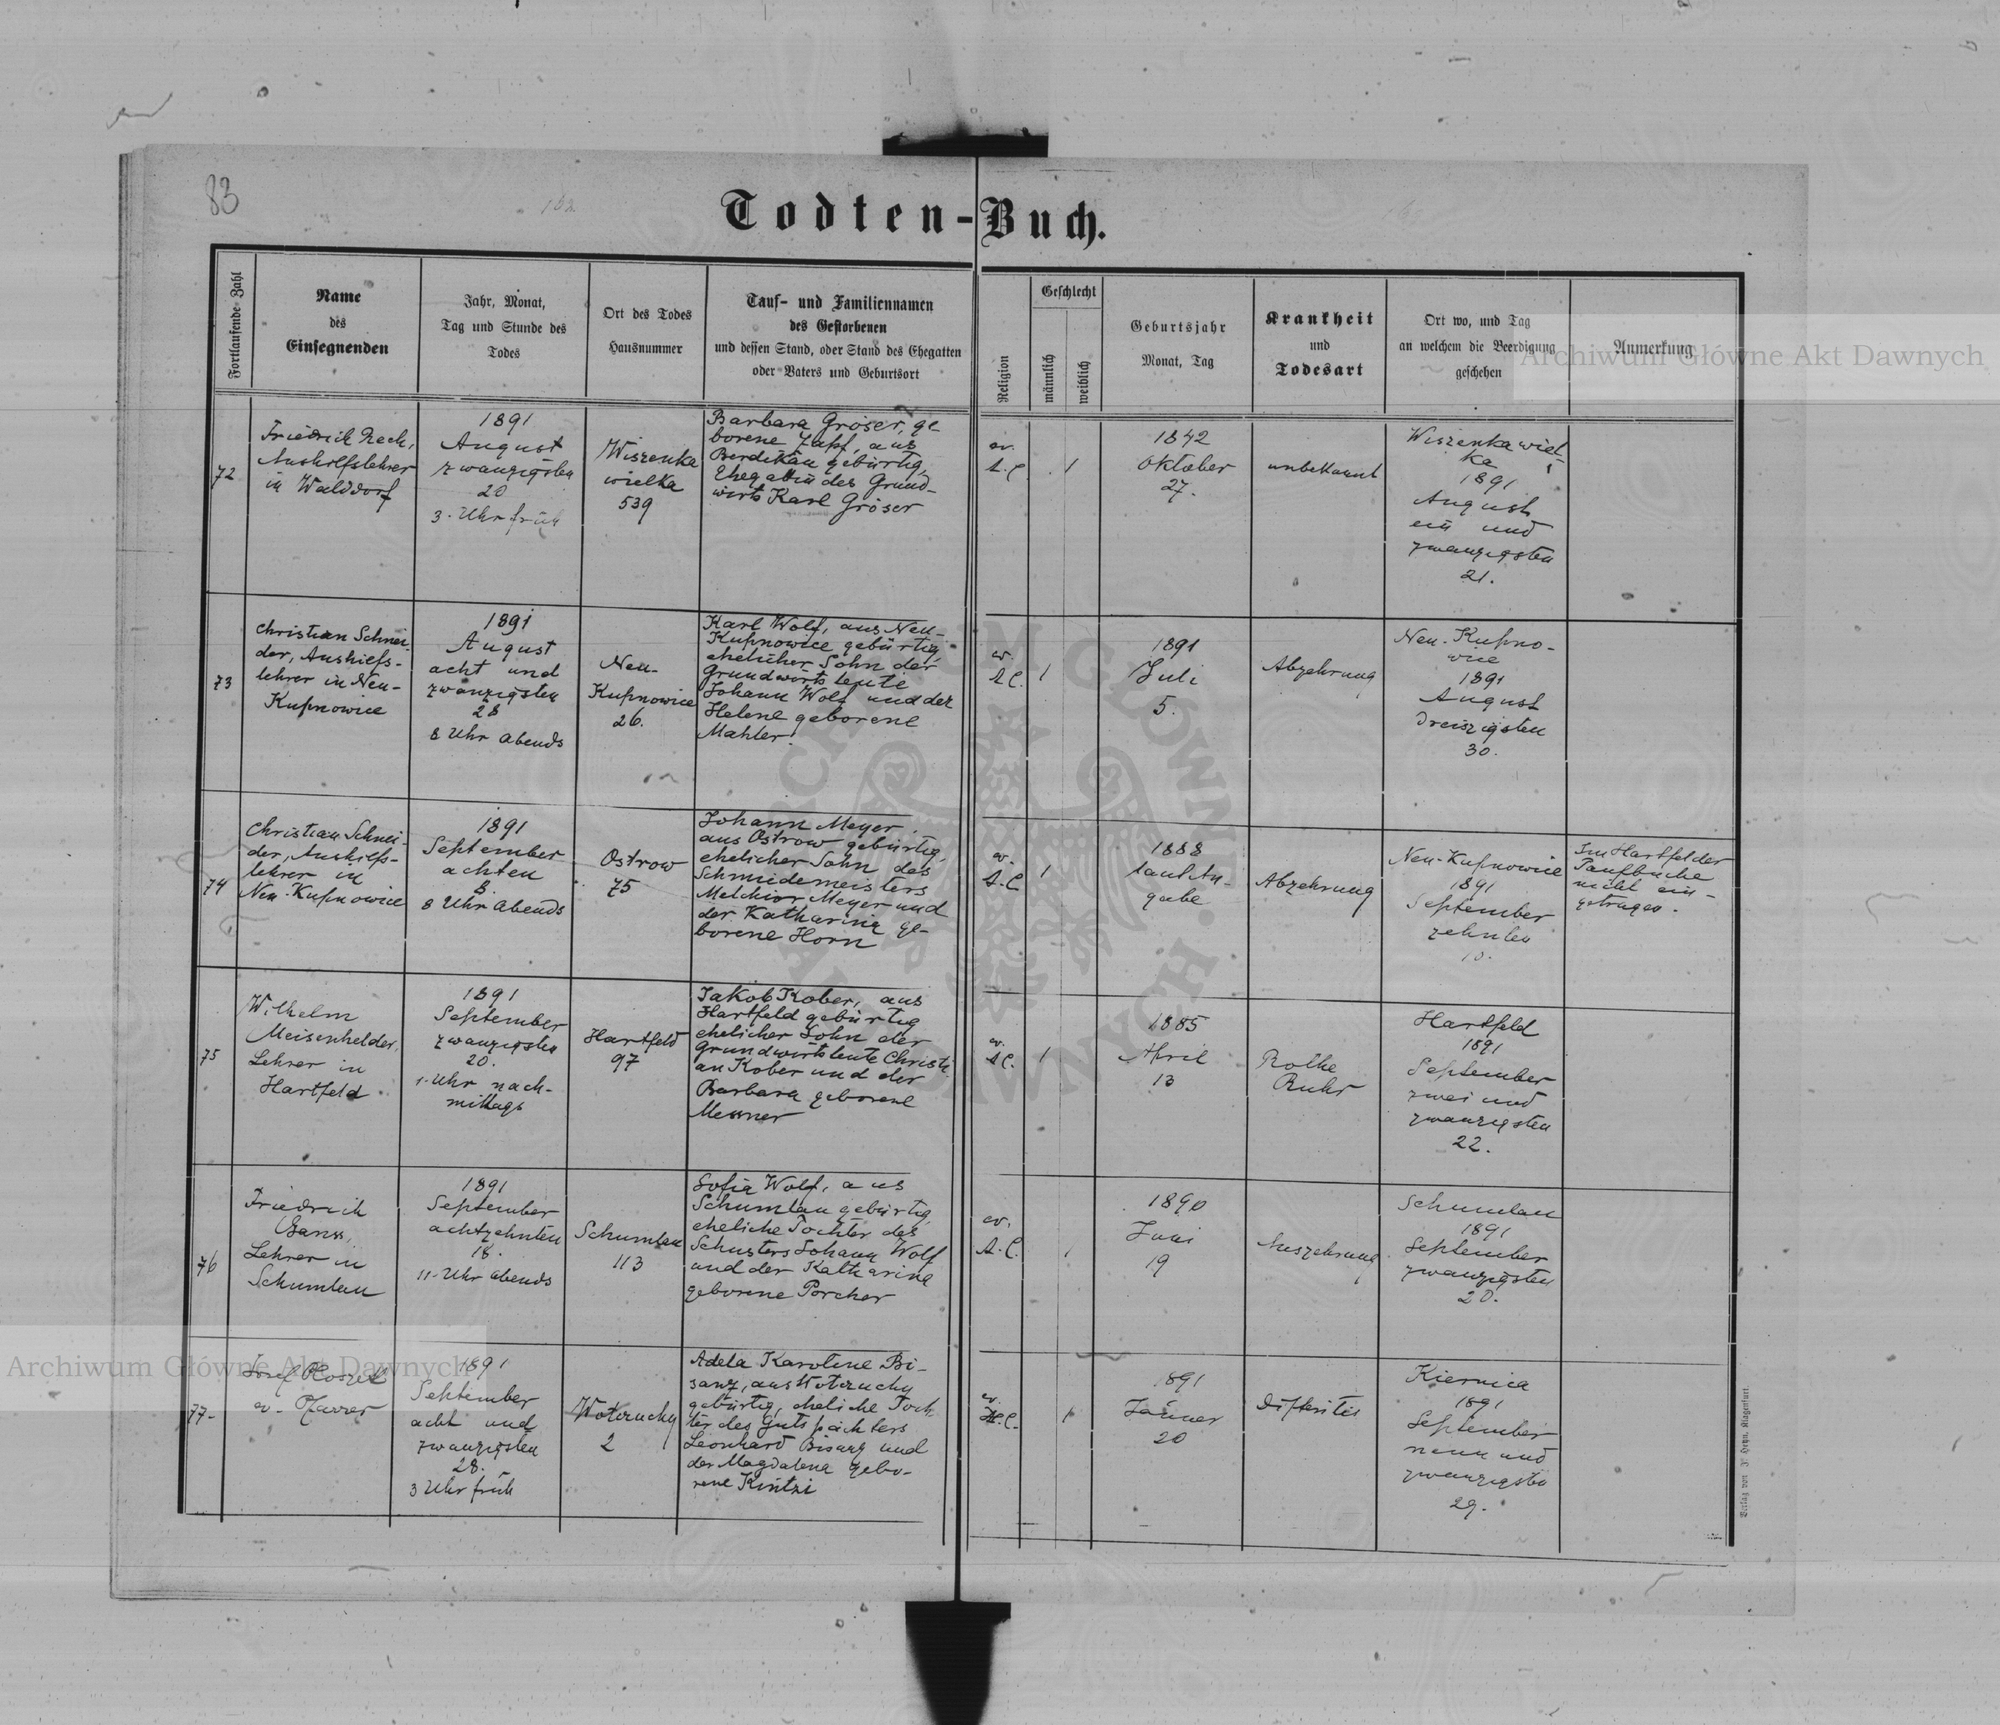 83
Todten-Buch.
Fortlaufende Zahl
Name
des
Einsegnenden
Jahr, Monat,
Tag und Stunde des
Todes
Ort des Todes
Hausnummer
Tauf- und Familiennamen
des Gestorbenen
und dessen Stand, oder Stand des Ehegatten
oder Vaters und Geburtsort
Religion
Geschlecht
männlich
weiblich
Geburtsjahr
Monat, Tag
Krankheit
und
Todesart
Ort wo, und Tag
an welchem die Beerdigung
geschehen
Anmerkung
Archiwum Główne Akt Dawnych
72
Friedrich Rech,
Aushilfslehrer
in Walddorf
1891
August
zwanzigsten
20
3. Uhr früh
Wiszenka
wielka
539
Barbara Gröser, ge
borene Zapf, aus
Berdikau gebürtig,
Ehegattin des Grund-
wirts Karl Gröser
ev.
A.C.
1
1842
Oktober
27.
unbekannt
Wiszenka wiel-
ka
1891
August
ein und
zwanzigsten
21.
73
Christian Schnei-
der, Aushilfs-
lehrer in Neu-
Kupnowice
1891
August
acht und
zwanzigsten
28
8 Uhr abends
Neu-
Kupnowice
26.
Karl Wolf, aus Neu-
Kupnowice gebürtig,
ehelicher Sohn der
Grundwirtsleute
Johann Wolf und der
Helene geborene
Mahler.
ev.
A.C.
1
1891
Juli
5.
Abzehrung
Neu-Kupno-
wice
1891
August
dreiszigsten
30.
74
Christian Schnei-
der, Aushilfs-
lehrer in
Neu-Kupnowice
1891
September
achten
8.
8 Uhr abends
Ostrow
75
Johann Meyer,
aus Ostrow gebürtig,
ehelicher Sohn des
Schmiedemeisters
Melchior Meyer und
der Katharina ge-
borene Horn
ev.
A.C.
1
1888
laut An-
gabe
Abzehrung
Neu-Kupnowice
1891
September
zehnten
10.
Im Hartfelder
Taufbuche
nicht ein-
getragen.
75
Wilhelm
Meisenhelder,
Lehrer in
Hartfeld
1891
September
zwanzigsten
20.
1. Uhr nach-
mittags
Hartfeld
97
Jakob Kober, aus
Hartfeld gebürtig
ehelicher Sohn der
Grundwirtsleute Christi-
an Kober und der
Barbara geborene
Messner
ev.
A.C.
1
1885
April
13
Rothe
Ruhr
Hartfeld
1891
September
zwei und
zwanzigsten
22.
76
Friedrich
Ganss,
Lehrer in
Schumlau
1891
September
achtzehnten
18.
11. Uhr abends
Schumlau
113
Sofia Wolf, aus
Schumlau gebürtig,
eheliche Tochter des
Schusters Johann Wolf
und der Katharina
geborene Porcher
ev.
A.C.
1
1890
Juni
19
Auszehrung
Schumlau
1891
September
zwanzigsten
20.
77.
Josef
ev. Pfarrer
1891
September
acht und
zwanzigsten
28.
3 Uhr früh
Wotczuchy
2
Adela Karoline Bi-
sanz, aus Wotczuchy
gebürtig, eheliche Toch-
ter des Gutspächters
Leonhard Bisanz und
der Magdalena gebo-
rene Kintzi
ev.
H.C.
1
1891
Jänner
20
Difteritis
Kiernica
1891
September
neun und
zwanzigsten
29.
Archiwum Główne Akt Dawnych
Verlag von J. Heyn, Klagenfurt.